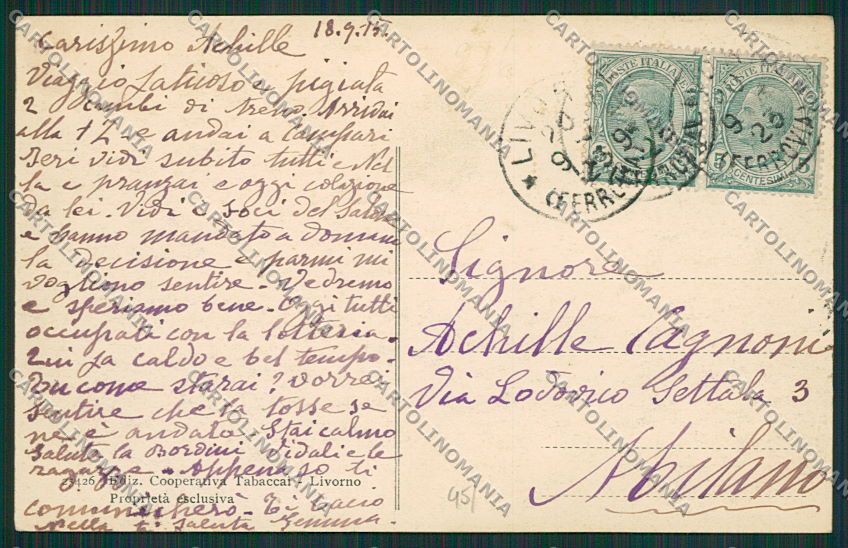 18.9.15
Carissimo Achille
Viaggio faticoso e pigiata
2 cambi di treno Arrivai
alla 12 e andai a Campari
Ieri vidi subito tutti e Nel
la e pranzai e oggi colazione
da lei. Vidi i soci del Salone
e hanno mandato a domani
la decisione e parmi mi
vogliono sentire. Vedremo
e speriamo bene. Oggi tutti
occupati con la lotteria.
Qui fa caldo e bel tempo.
Tu come starai? Vorrei
sentire che la tosse se
ne è andata. Stai calmo
Saluta la Bordini Vidali e le
ragazze. Appena so ti
23426 Ediz. Cooperativa Tabaccai - Livorno
Proprietà esclusiva
comunicherò. Ti bacio
Nella ti saluta Gemma.
POSTE ITALIANE
POSTE ITALIANE
CENTESIMI
LIVORNO
(FERROVIA)
(FERROVIA)
Signore
Achille Cagnoni
Via Lodovico Settala 3
Milano
45/
CARTOLINOMANIA